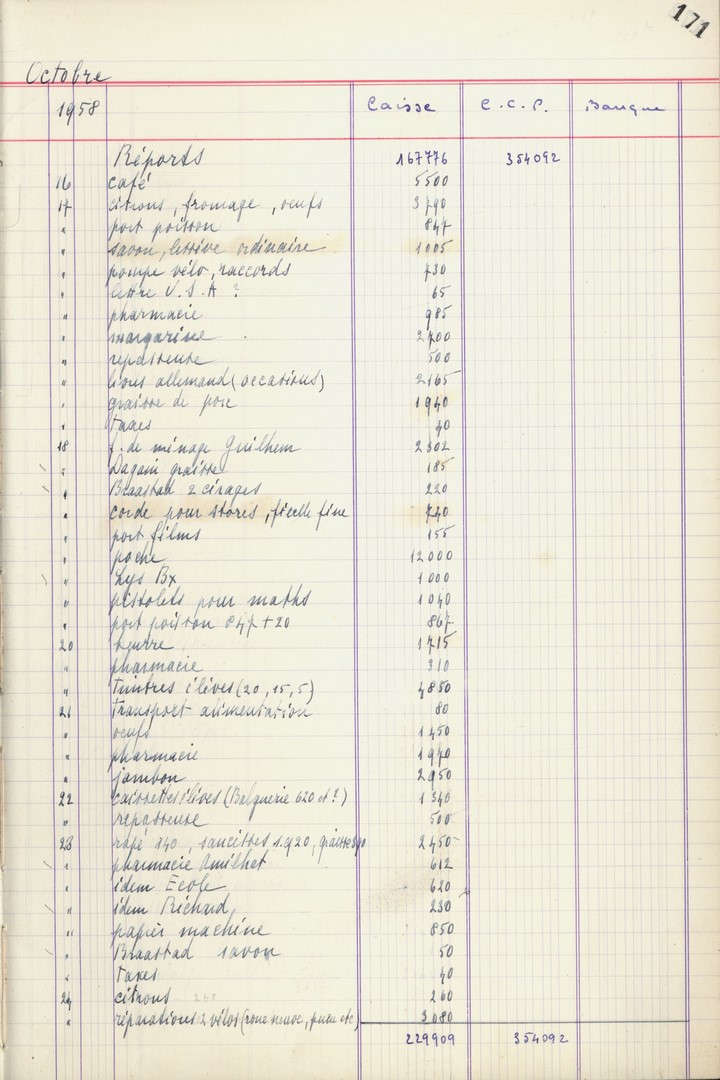 171
Octobre
1958 Caisse C.C.P. Banque
Réports 167776 354092
16 café 5500
17 citrons, fromage, oeufs 3790
" port poisson 847
" savon, lessive ordinaire 1005
" pompe vélo, raccords 730
" lettre U.S.A ? 65
" pharmacie 985
" margarine 2700
" repasseuse 500
" livres allemand (occasions) 2165
" graisse de porc 1940
" taxes 40
18 f. de ménage Guilhem 2302
" Dagain graisse 185
" Braastad 2 cirages 220
" corde pour stores, ficelle fine 740
" port films 155
" poche 12000
" Lys Bx 1000
" pistolets pour maths 1040
" port poisson 847+20 867
20 beurre 1715
" pharmacie 310
" timbres élèves (20, 15, 5) 4850
21 transport alimentation 80
" oeufs 1450
" pharmacie 1970
" jambon 2950
22 caissettes élèves (Balguerie 620 et ?) 1340
" repasseuse 500
23 rapé 140, saucisses 1920, graisse 390 2450
" pharmacie Amilhet 612
" idem Ecole 620
" idem Richard 230
" papier machine 850
" Braastad savon 50
" taxes 40
24 citrons 260 260
" réparations 2 vélos (roue neuve, pneu etc) 3080
229909 354092